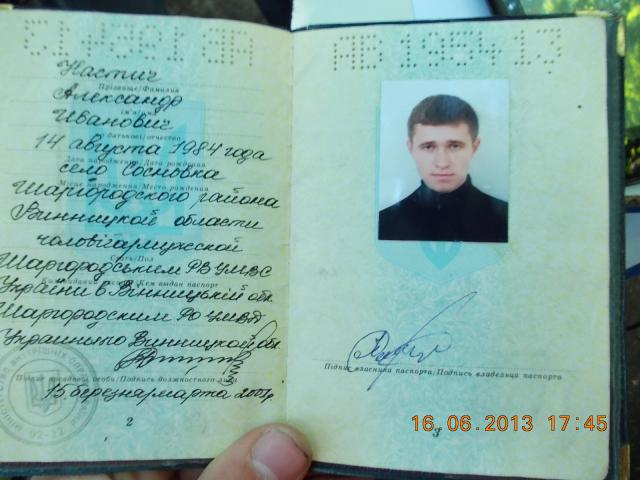 АВ 195412
Настич
Прізвище/Фамилия
Александр
ім'я/имя
Иванович
по батькові/отчество
14 августа 1984 года
Дата народження/Дата рождения
село Сосновка
Місце народження/Место рождения
Шаргородского района
Винницкой области
чоловіча/мужской
Стать/Пол
Шаргородським РВ УМВС
України в Вінницькій обл.
Шаргородским РО УМВД
Украины по Винницкой обл.
Підпис посадової особи/Подпись должностного лица
15 березня/марта 2001р
2
АВ 195412
Підпис власника паспорта/Подпись владельца паспорта
3
16.06.2013 17:45